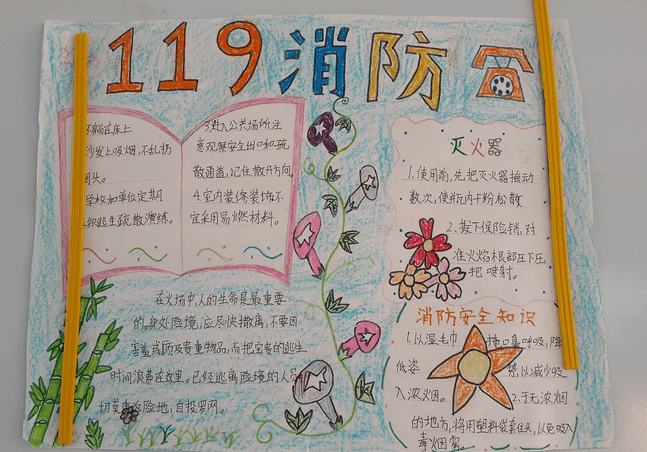 119消防
不躺在床上
沙发上吸烟,不乱扔
烟头。
学校和单位定期
组织逃生疏散演练。
3.进入公共场所注
意观察安全出口和疏
散通道,记住散开方向
4.室内装修装饰不
宜采用易燃材料。
灭火器
1.使用前,先把灭火器摇动
数次,使瓶内干粉松散
2.拔下保险销,对
准火焰根部压下压
把喷射。
在火场中,人的生命是最重要
的,身处险境,应尽快撤离,不要因
害羞或顾及贵重物品,而把宝贵的逃生
时间浪费在这里。已经逃离险境的人员
切莫重返险地,自投罗网。
消防安全知识
1.以湿毛巾 捂口鼻呼吸,降
低姿 势,以减少吸
入浓烟。 2.于无浓烟
的地方,将用塑料袋套住头,以免吸入
毒烟雾。